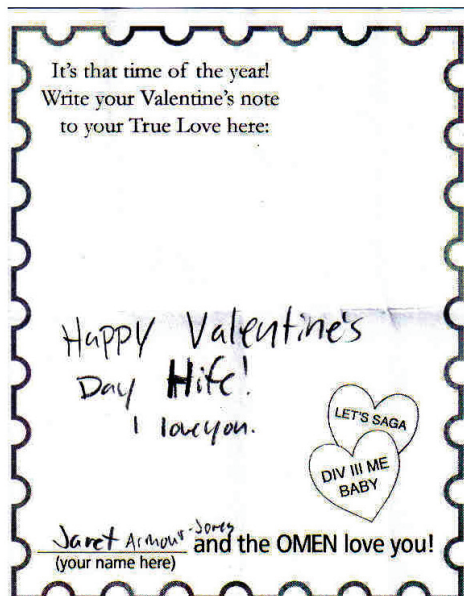 It's that time of the year!
Write your Valentine's note
to your True Love here:
Happy Valentine's
Day Hife!
I love you.
LET'S SAGA
DIV III ME
BABY
Jaret Armour-Jones and the OMEN love you!
(your name here)